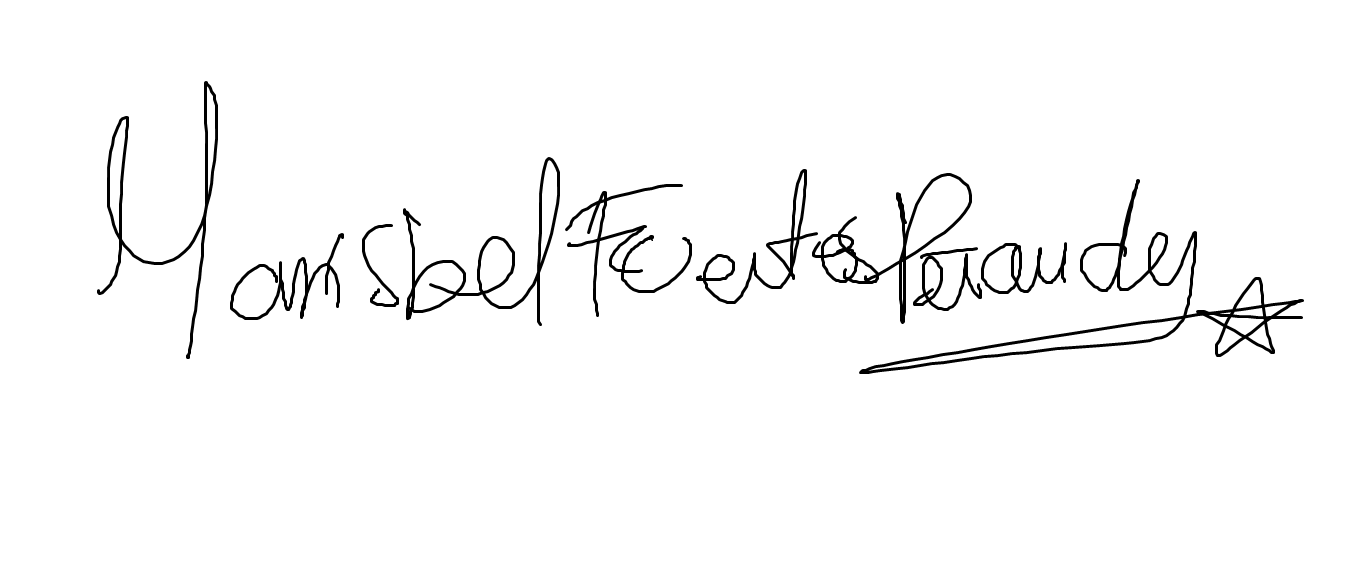 Marisbel Fuertes Peraudy